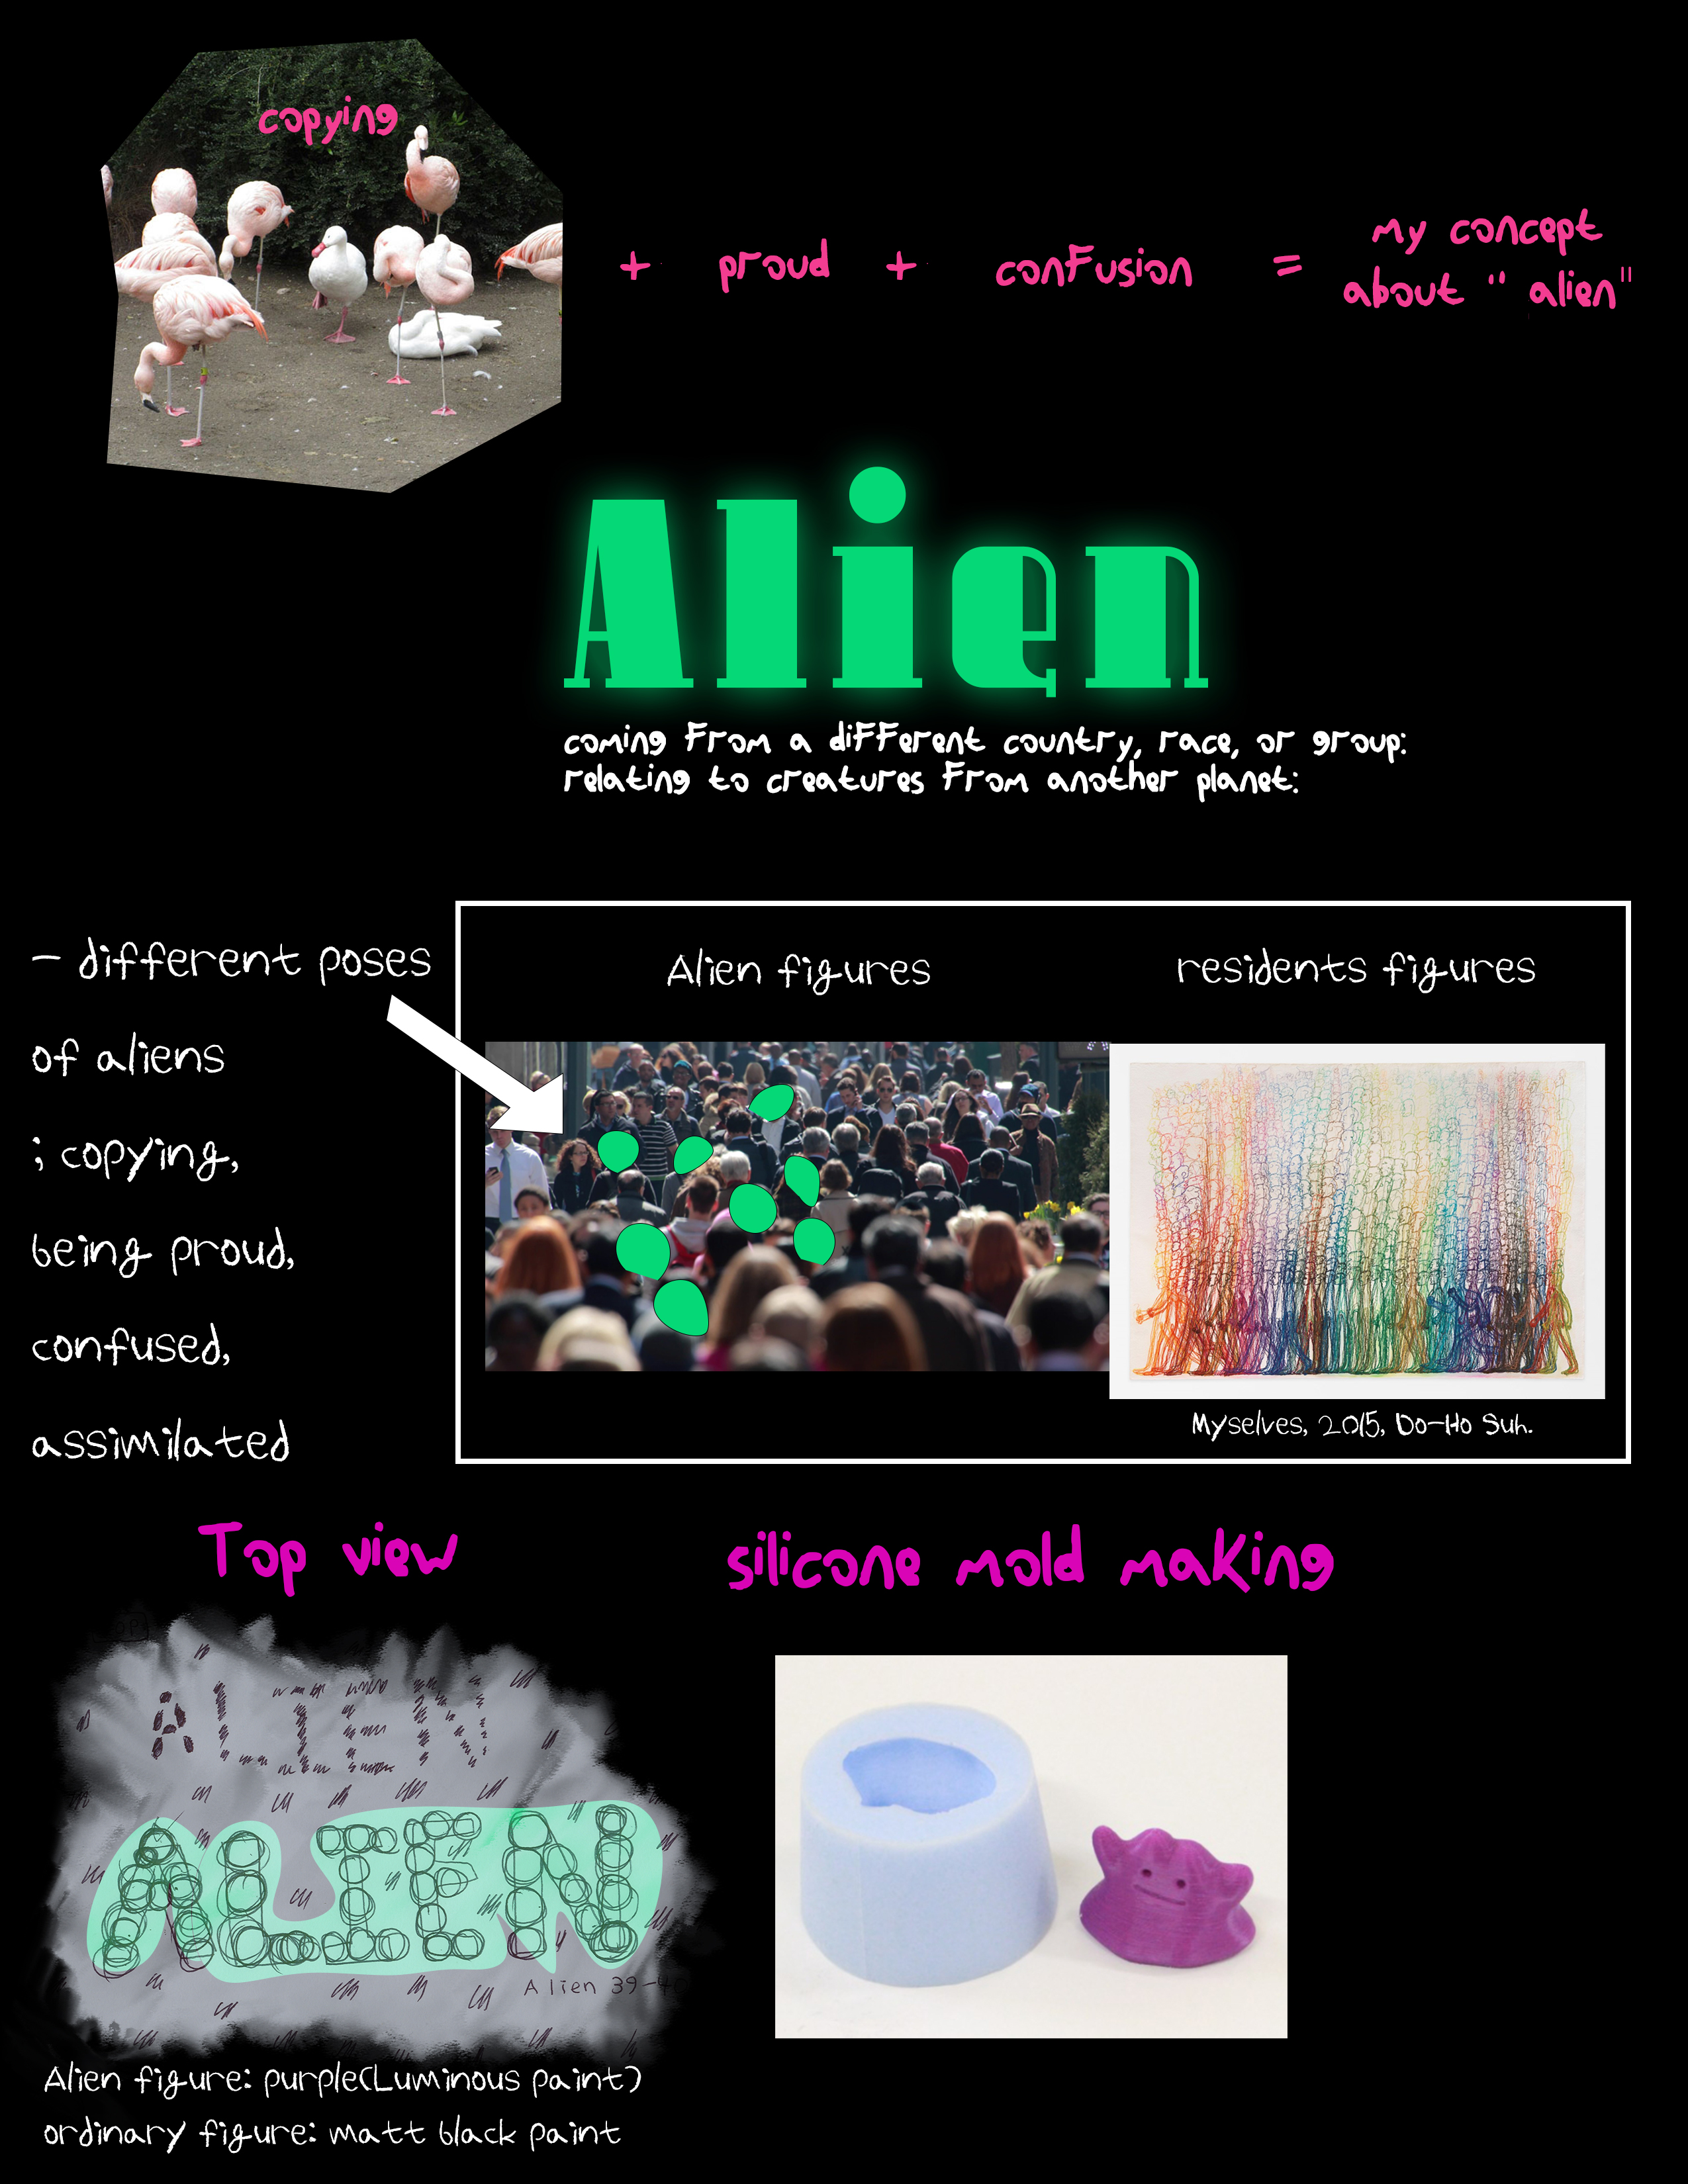 copying
+ proud + confusion = my concept
about " alien"
Alien
coming from a different country, race, or group:
relating to creatures from another planet:
- different poses
of aliens
; copying,
being proud,
confused,
assimilated
Alien figures
residents figures
Myselves, 2015, Do-Ho Suh.
Top view
silicone mold making
ALIEN
ALIEN
Alien 39-40
Alien figure: purple(Luminous paint)
ordinary figure: matt black paint